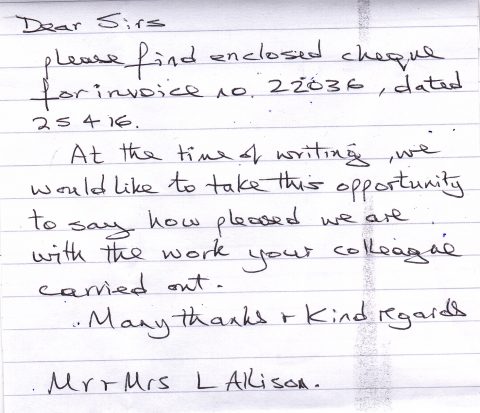 Dear Sirs
please find enclosed cheque
for invoice no. 22036, dated
25 4 16.
At the time of writing, we
would like to take this opportunity
to say how pleased we are
with the work your colleague
carried out.
Many thanks + Kind regards
Mr + Mrs L Allison.